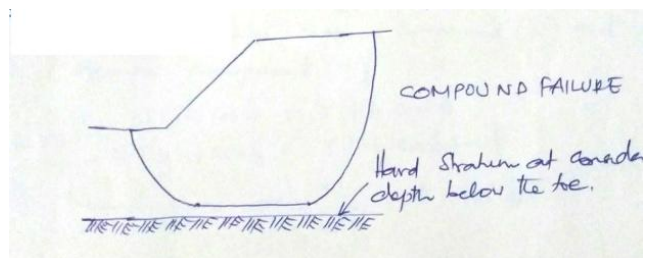 COMPOUND FAILURE
Hard Stratum at
depth below the toe.